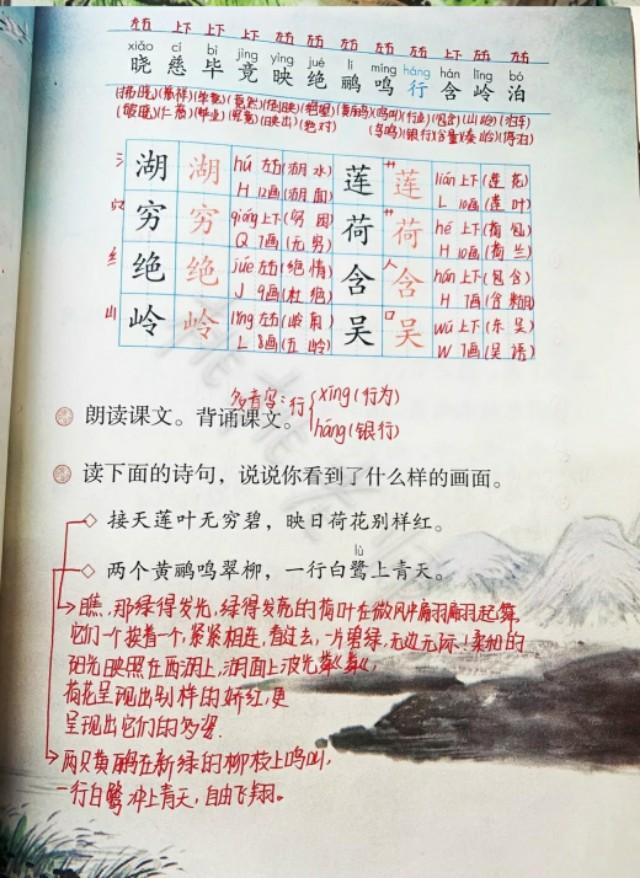 左右 上下 上下 上下 左右 左右 左右 左右 左右 上下 上下 左右
xiǎo cí bì jìng yìng jué lí míng háng hán lǐng bó
晓 慈 毕 竟 映 绝 鹂 鸣 行 含 岭 泊
(拂晓)(慈祥)(毕竟)(竟然)(倒映)(绝望)(黄鹂鸟)(鸣叫)(行业)(包含)(山岭)(泊车)
(破晓)(仁慈)(毕业)(究竟)(映出)(绝对) (鸟鸣)(银行)(含量)(秦岭)(停泊)
氵 湖 湖 hú 左右(湖水) 莲 艹 莲 lián 上下(莲花)
H 12画(湖面) L 10画(莲叶)
穴 穷 穷 qióng 上下(穷困) 荷 艹 荷 hé 上下(荷包)
Q 7画(无穷) H 10画(荷兰)
纟 绝 绝 jué 左右(绝情) 含 人 含 hán 上下(包含)
J 9画(杜绝) H 7画(含糊)
山 岭 岭 lǐng 左右(岭南) 吴 口 吴 wú 上下(东吴)
L 8画(五岭) W 7画(吴语)
多音字:行 xíng(行为)
háng(银行)
朗读课文。背诵课文。
读下面的诗句，说说你看到了什么样的画面。
◇ 接天莲叶无穷碧，映日荷花别样红。
lù
◇ 两个黄鹂鸣翠柳，一行白鹭上青天。
瞧,那绿得发光,绿得发亮的荷叶在微风中翩翩起舞,
它们一个挨着一个,紧紧相连,看过去,一片碧绿,无边无际!柔和的
阳光映照在西湖上,湖面上波光粼粼,
荷花呈现出别样的娇红,更
呈现出它们的多姿.
两只黄鹂在新绿的柳枝上鸣叫,
一行白鹭冲上青天,自由飞翔。